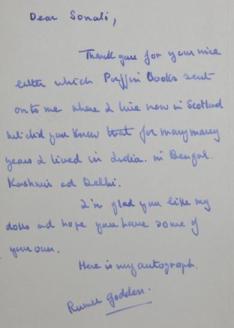 Dear Sonali,
Thank you for your nice
letter which Puffin Books sent
on to me where I live now in Scotland
but did you know that for many many
years I lived in India. in Bengal.
Kashmir ad Delhi.
I'm glad you like my
dolls and hope you have some of
your own.
Here is my autograph.
Rumer Godden.